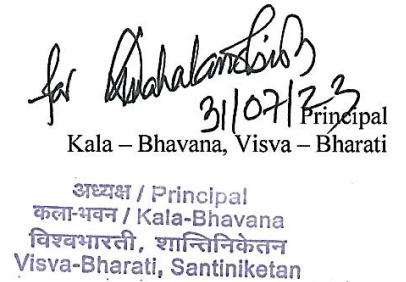 for
31/07/23
Principal
Kala – Bhavana, Visva – Bharati
अध्यक्ष / Principal
कला-भवन / Kala-Bhavana
विश्वभारती, शान्तिनिकेतन
Visva-Bharati, Santiniketan